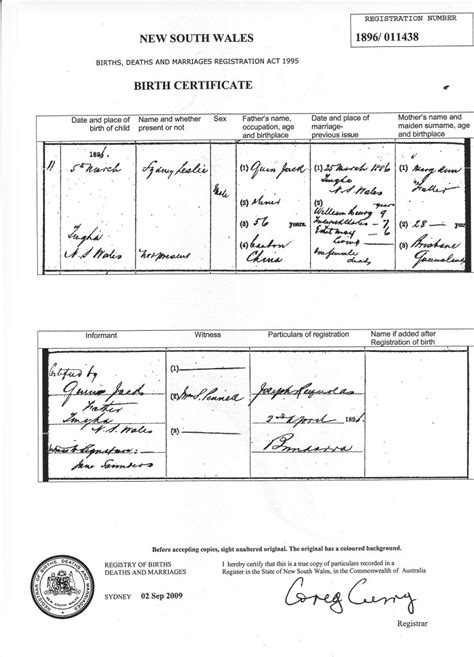 REGISTRATION NUMBER
1896/ 011438
NEW SOUTH WALES
BIRTHS, DEATHS AND MARRIAGES REGISTRATION ACT 1995
BIRTH CERTIFICATE
Date and place of birth of child
Name and whether present or not
Sex
Father's name, occupation, age and birthplace
Date and place of marriage- previous issue
Mother's name and maiden surname, age and birthplace
11
1896
5th March
Sydney Leslie
Male
(1) Quin Jack
(1) 25 March 1886
Tingha
N.S Wales
(1) Mary Ann
(2) Miner
(2)
William Henry 9
7
Edit May 6
living
(3) 56 years.
(2) 28 —
(4) Canton
China
(3) Brisbane
Queensland
Tingha
N.S Wales
Not present
one female
dead
Informant
Witness
Particulars of registration
Name if added after Registration of birth
Certified by
Quin Jack
Father
Tingha
N.S. Wales
Jane Saunders
(1)
(2) Mrs
(3)
Joseph Reynolds
2nd April 1896
Bundarra
Before accepting copies, sight unaltered original. The original has a coloured background.
REGISTRY OF BIRTHS
DEATHS AND MARRIAGES
I hereby certify that this is a true copy of particulars recorded in a
Register in the State of New South Wales, in the Commonwealth of Australia
SYDNEY 02 Sep 2009
Greg Curry
Registrar
REGISTRAR OF BIRTHS, DEATHS AND MARRIAGES
NEW SOUTH WALES